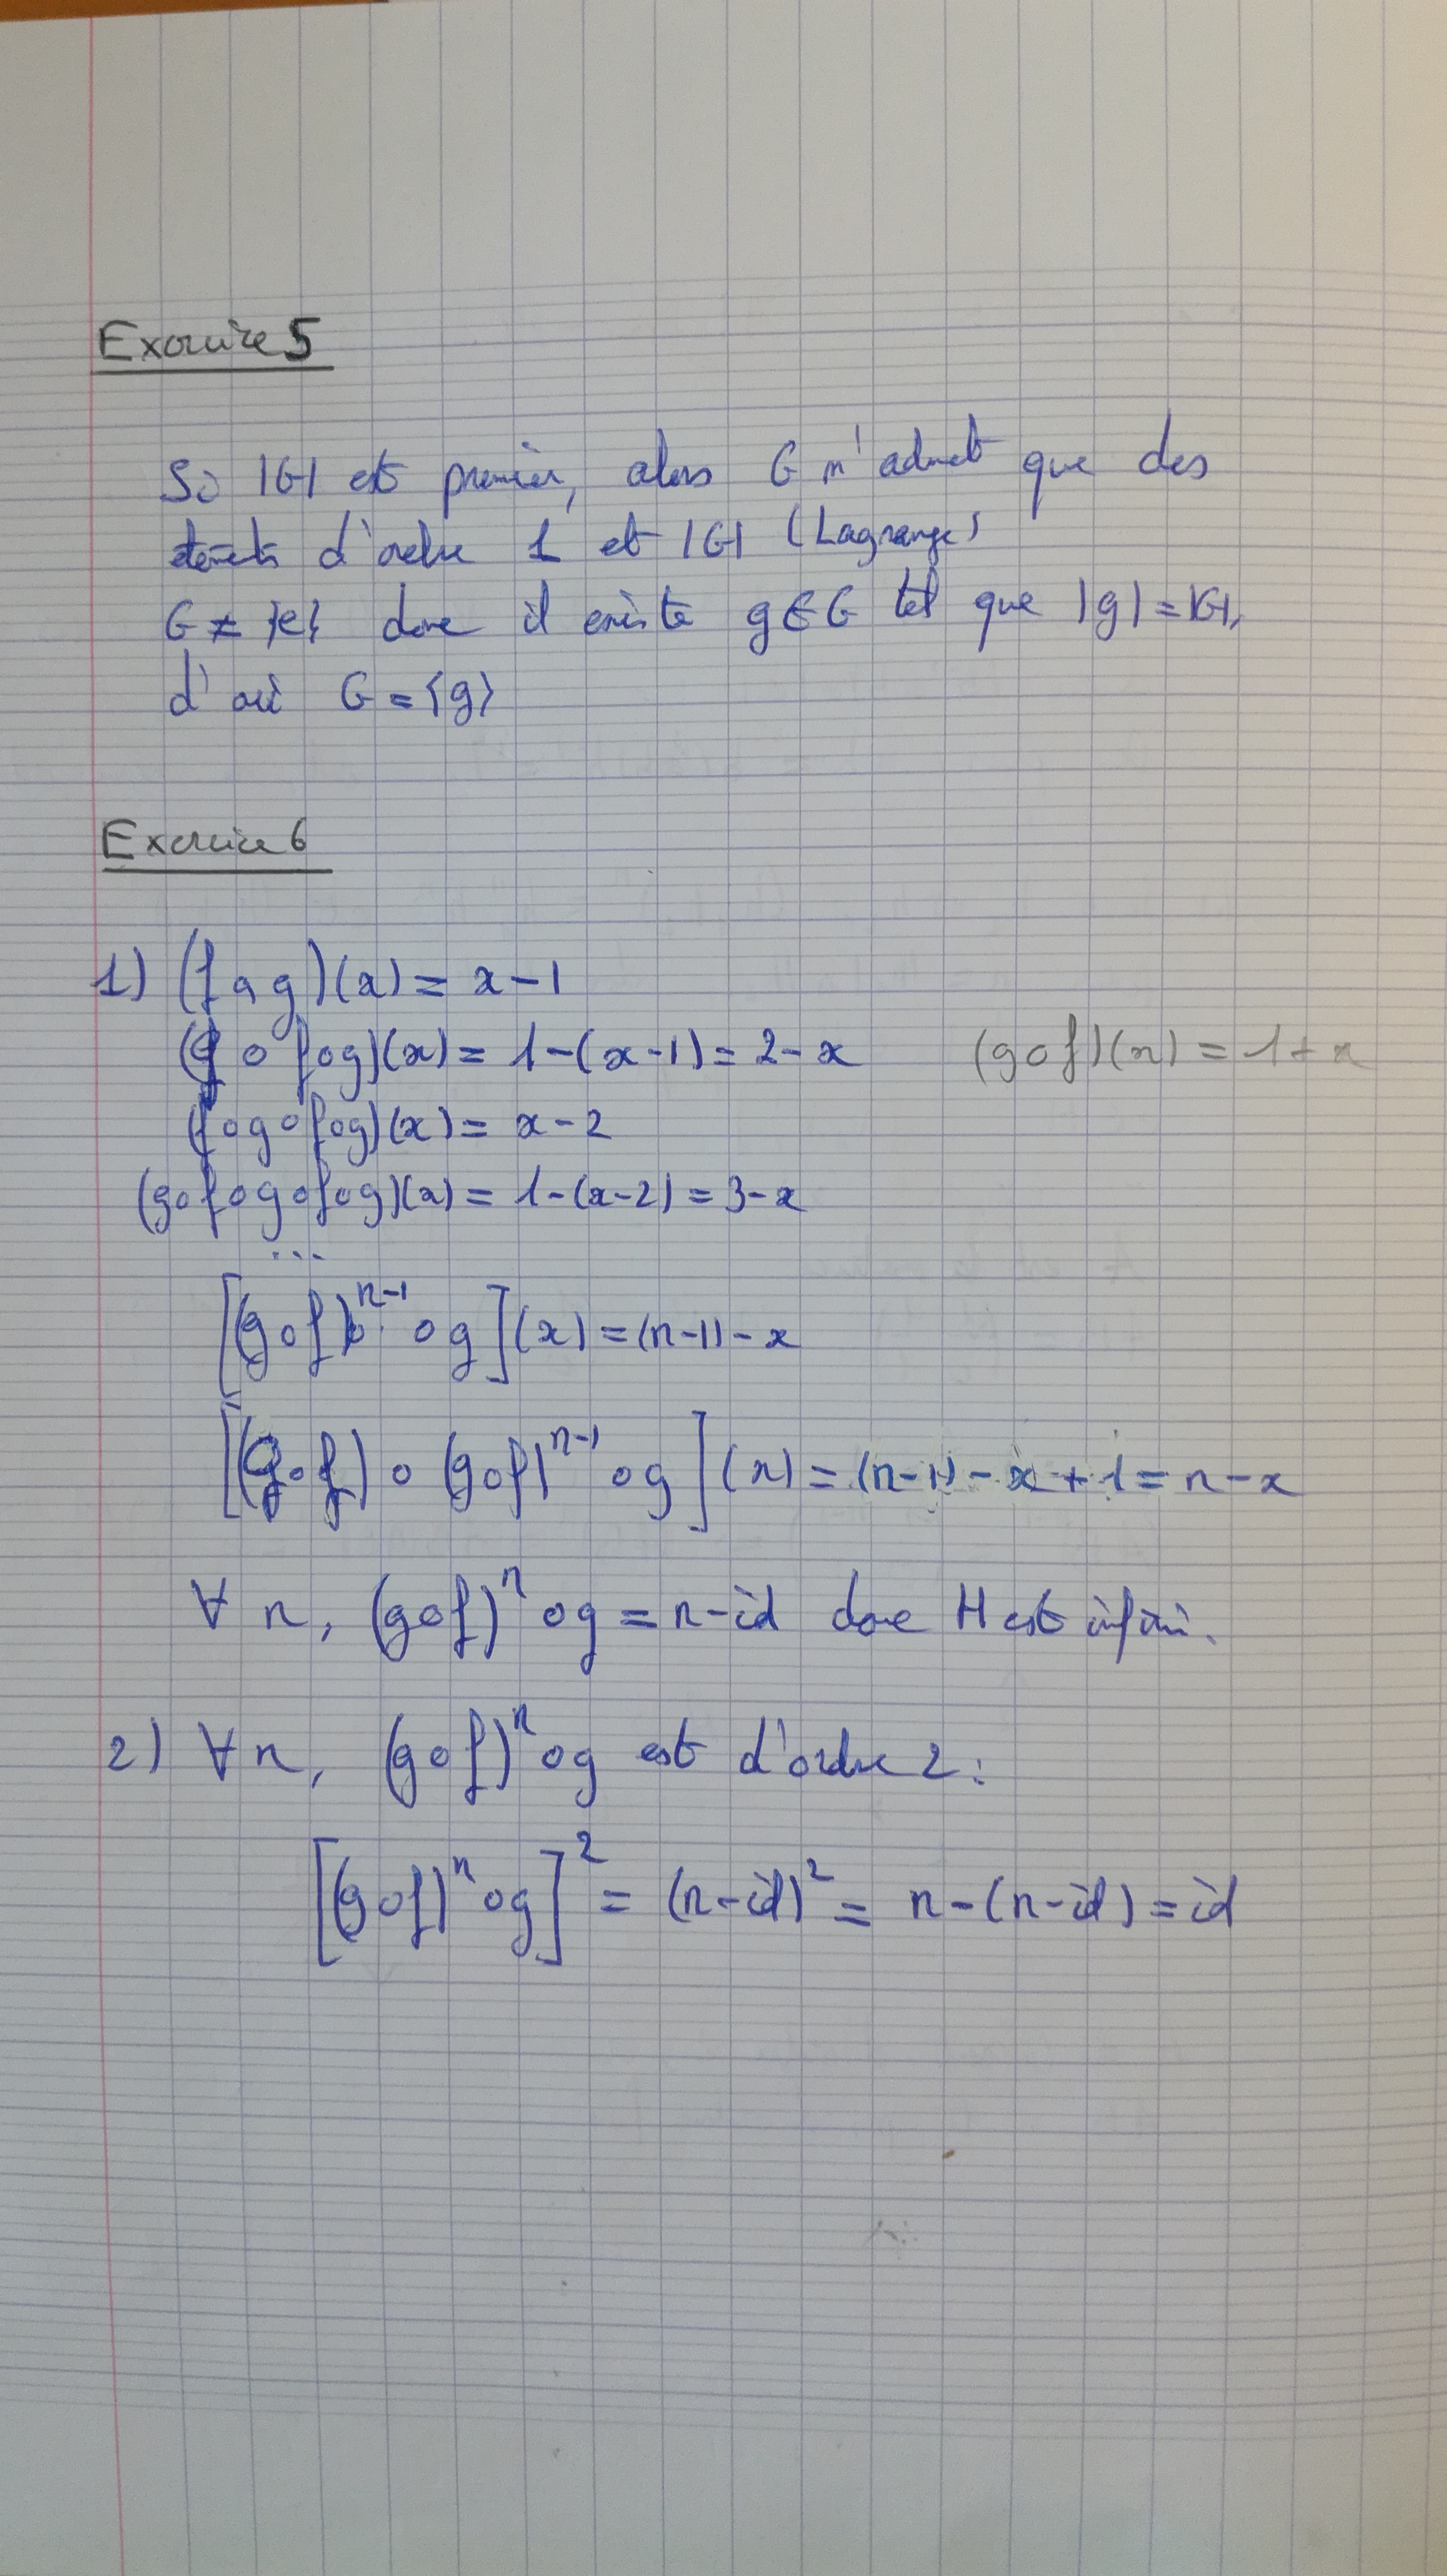 Exercice 5
Si |G| est premier, alors G n'admet que des
éléments d'ordre 1 et |G| (Lagrange)
G ≠ {e} donc il existe g ∈ G tel que |g| = |G|,
d'où G = ⟨g⟩
Exercice 6
1) (f o g)(x) = x - 1
(g o f o g)(x) = 1 - (x - 1) = 2 - x (g o f)(x) = 1 + x
(f o g o f o g)(x) = x - 2
(g o f o g o f o g)(x) = 1 - (x - 2) = 3 - x
...
[(g o f)^{n-1} o g](x) = (n-1) - x
[(g o f) o (g o f)^{n-1} o g](x) = (n-1) - x + 1 = n - x
∀ n, (g o f)^n o g = n - id donc H est infini.
2) ∀ n, (g o f)^n o g est d'ordre 2 :
[(g o f)^n o g]^2 = (n - id)^2 = n - (n - id) = id